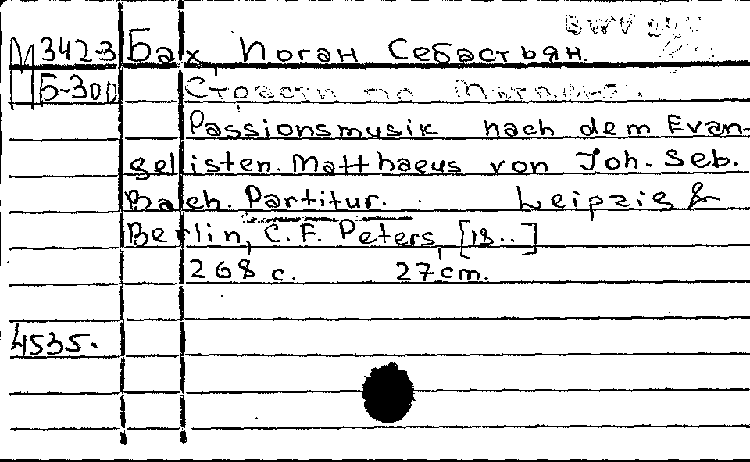 BWV 244
М3423 Бах, Иоган Себастьян.
Б-300 Страсти по Матфею.
Passionsmusik nach dem Evan-
gelisten Matthaeus von Joh. Seb.
Bach. Partitur. Leipzig &
Berlin, C. F. Peters, [18..]
268 с. 27 cm.
4535.